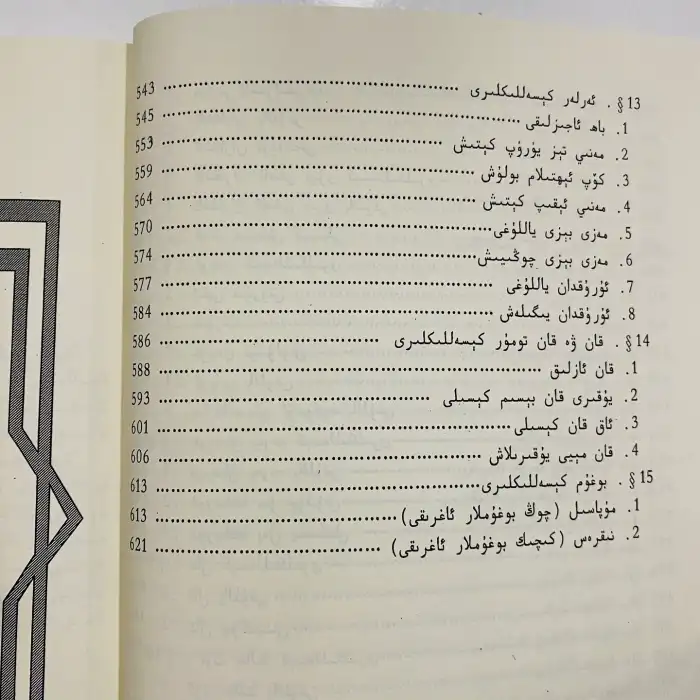 13§ . ئەرلەر كېسەللىكلىرى ........ 543
1. باھ ئاجىزلىقى ........ 545
2. مەنىي تېز يۈرۈپ كېتىش ........ 553
3. كۆپ ئېھتىلام بولۇش ........ 559
4. مەنىي ئېقىپ كېتىش ........ 564
5. مەزى بېزى ياللۇغى ........ 570
6. مەزى بېزى چوڭىيىش ........ 574
7. ئۇرۇقدان ياللۇغى ........ 577
8. ئۇرۇقدان يىگىلەش ........ 584
14§ . قان ۋە قان تومۇر كېسەللىكلىرى ........ 586
1. قان ئازلىق ........ 588
2. يۇقىرى قان بېسىم كېسىلى ........ 593
3. ئاق قان كېسىلى ........ 601
4. قان مېيى يۇقىرىلاش ........ 606
15§ . بوغۇم كېسەللىكلىرى ........ 613
1. مۇپاسىل (چوڭ بوغۇملار ئاغرىقى) ........ 613
2. نىقرەس (كىچىك بوغۇملار ئاغرىقى) ........ 621